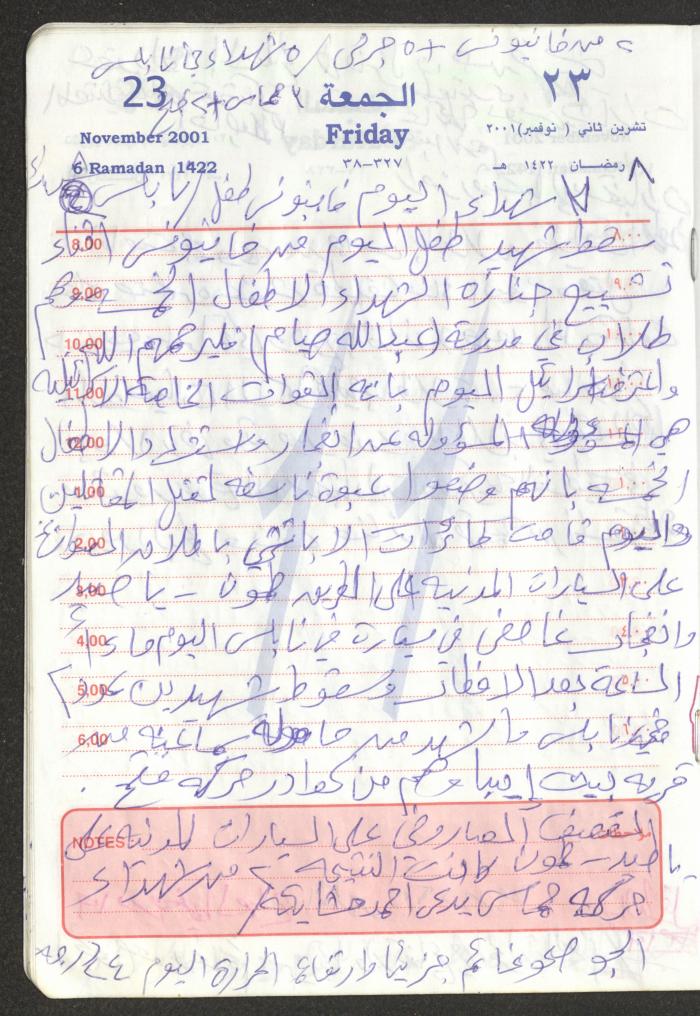 ٢ من خانيونس + ٥ جرحى / ٥ شهداء في نابلس
23 ٢ حماس + ٢ الجمعة ٢٣
November 2001 Friday تشرين ثاني ( نوفمبر ) ٢٠٠١
6 Ramadan 1422 ٣٨-٣٢٧ ٨ رمضان ١٤٢٢ هـ
٧ شهداء اليوم خانيونس طفل / نابلس
8,00 سقط شهيد طفل اليوم من خانيونس اثناء ٨,٠٠
9,00 تشييع جنازة الشهداء الاطفال الخمسة وهم ٩,٠٠
10,00 طلاب في مدرسة (عبدالله صيام) فليرحمهم الله ١٠,٠٠
11,00 واعترفت اسرائيل اليوم بانه القوات الخاصة الاسرائيلية
12,00 هي المسؤوله عن انفجار واستشهاد الاطفال
1,00 الخمسه بانهم وضعوا عبوة ناسفه لقتل المقاتلين ١,٠٠
2,00 واليوم قامت طائرات الاباتشي باطلاق الصواريخ
3,00 على السيارات المدنيه على الطريق طمون - ياصيد
4,00 وانفجار غامض في سيارة في نابلس اليوم مساءً ٤,٠٠
5,00 الساعة بعد الافطار وسقوط شهيدين ٥,٠٠
6,00 نابلس من قرية
قريه بيت إيبا وهم من كوادر حركه فتح .
NOTES القصف الصاروخي على السيارات المدنيه على
ياصيد - طمون كانت النتيجه ٢ من شهداء
حركه حماس يدعى احمد
الجو صحو غائم جزئياً وارتفاع الحرارة اليوم ٢٤